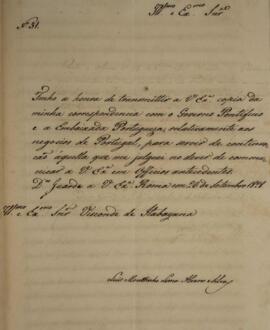 Illmo e Exmo Snr.
N. 31.
Tenho a honra de transmittir a V. Exa copia da
minha correspondencia com o Governo Pontificio
e a Embaixada Portugueza, relativamente aos
negocios de Portugal, para servir de continua-
cão áquella que me julguei no dever de commu-
nicar a V. Exa em Officios antecedentes.
Ds. Guarde a V. Exa. Roma em 26 de Setembro 1828
Illmo e Exmo Snr. Visconde de Itabayana
Luis Mouttinho Lima Alvares e Silva